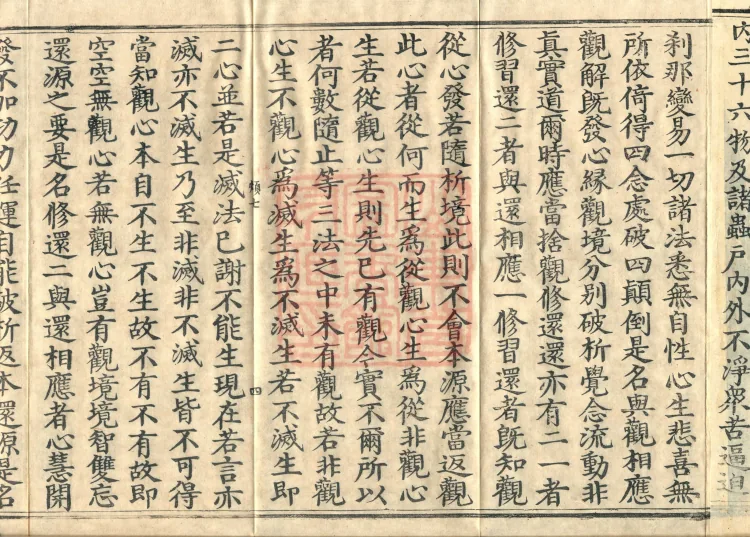 內三十六物及諸蟲戶內外不淨眾苦逼迫
剎那變易一切諸法悉無自性心生悲喜無
所依倚得四念處破四顛倒是名與觀相應
觀解既發心緣觀境分別破析覺念流動非
真實道爾時應當捨觀修還還亦有二一者
修習還二者與還相應一修習還者既知觀
從心發若隨析境此則不會本源應當返觀
此心者從何而生為從觀心生為從非觀心
生若從觀心生則先已有觀今實不爾所以
者何數隨止等三法之中未有觀故若非觀
心生不觀心為滅生為不滅生若不滅生即
頻七 四
二心並若是滅法已謝不能生現在若言亦
滅亦不滅生乃至非滅非不滅生皆不可得
當知觀心本自不生不生故不有不有故即
空空無觀心若無觀心豈有觀境境智雙忘
還源之要是名修還二與還相應者心慧開
發不加功力任運自能破析返本還源是名